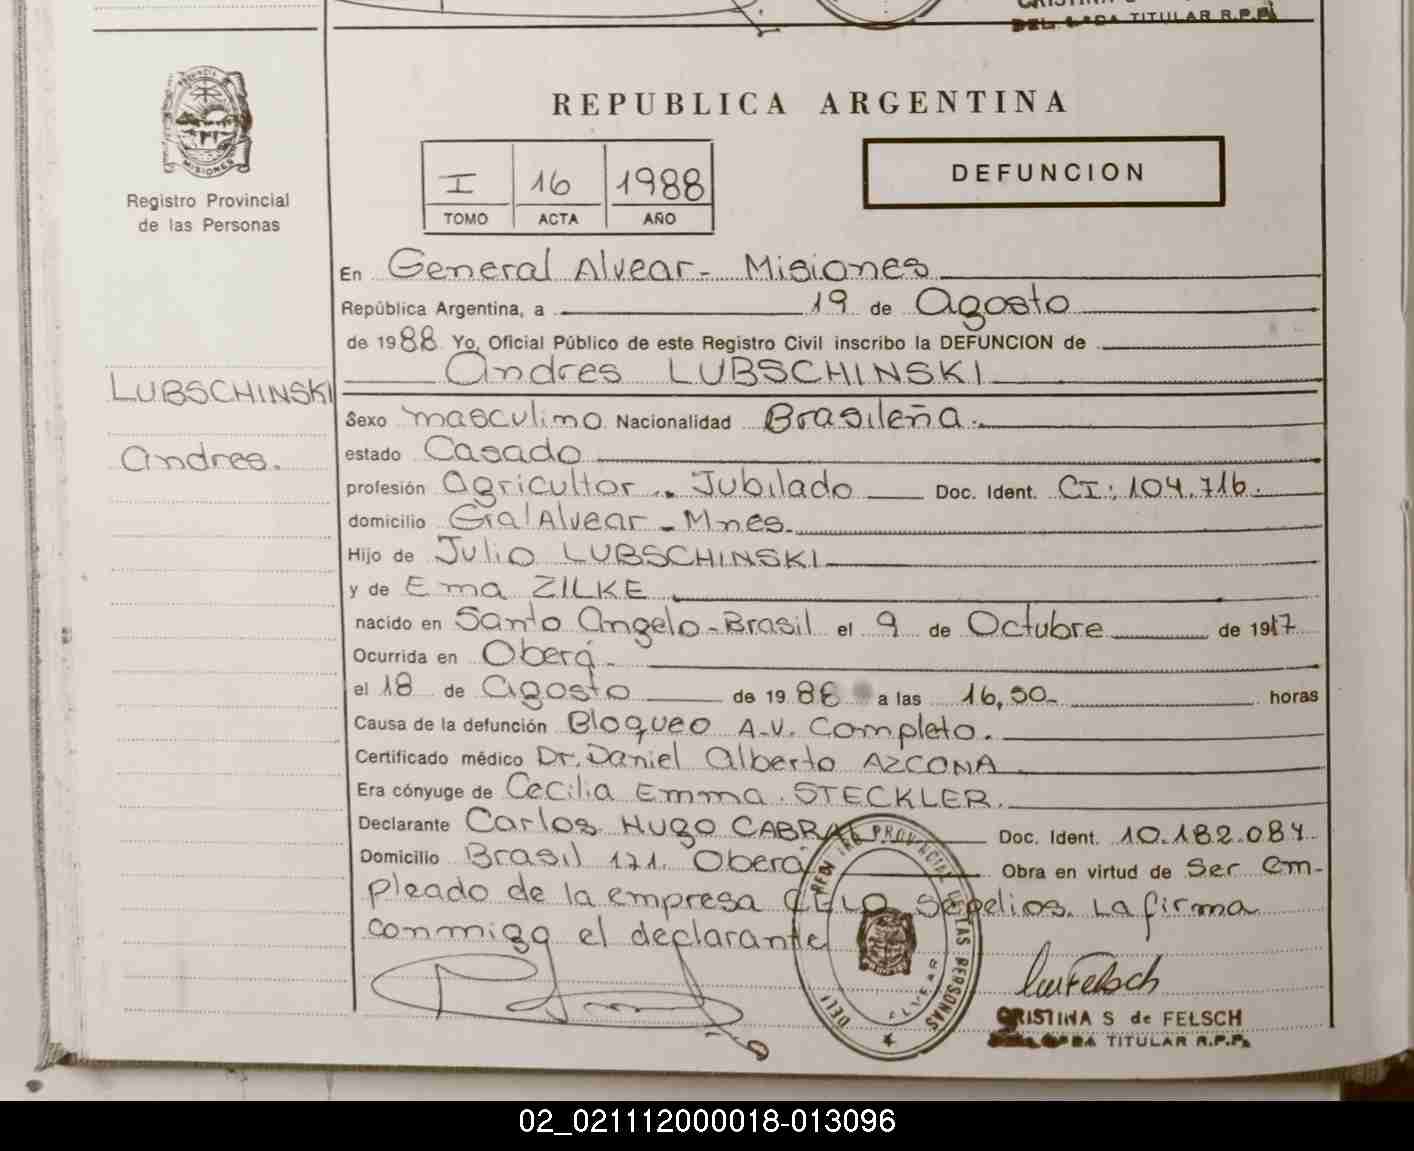 DEL GADA TITULAR R.P.P.
PROVINCIA
MISIONES
Registro Provincial
de las Personas
LUBSCHINSKI
Andres.
REPUBLICA ARGENTINA
I 16 1988
TOMO ACTA AÑO
DEFUNCION
En General Alvear - Misiones
República Argentina, a 19 de Agosto
de 1988 Yo, Oficial Público de este Registro Civil inscribo la DEFUNCION de
Andres LUBSCHINSKI
Sexo masculino Nacionalidad Brasileña.
estado Casado
profesión Agricultor - Jubilado Doc. Ident. CI: 104.716.
domicilio Gral Alvear - Mnes.
Hijo de Julio LUBSCHINSKI
y de Ema ZILKE
nacido en Santo Angelo - Brasil el 9 de Octubre de 1917
Ocurrida en Oberá.
el 18 de Agosto de 1988 a las 16,50 horas
Causa de la defunción Bloqueo A.V. Completo.
Certificado médico Dr. Daniel Alberto AZCONA
Era cónyuge de Cecilia Emma STECKLER.
Declarante Carlos HUGO CABRAL Doc. Ident. 10.182.084
Domicilio Brasil 171. Oberá Obra en virtud de Ser em-
pleado de la empresa CELO Sepelios. La firma
conmigo el declarante
REGISTRO PROVINCIAL DE LAS PERSONAS
ALVEAR
CRISTINA S de FELSCH
DELEGADA TITULAR R.P.P.
02_021112000018-013096